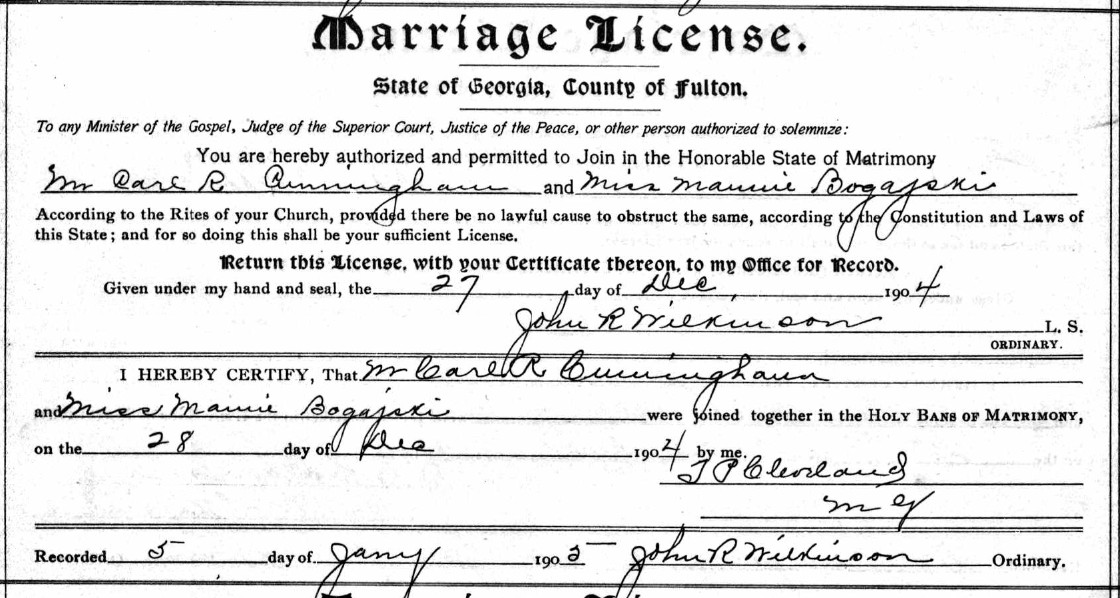 Marriage License.
State of Georgia, County of Fulton.
To any Minister of the Gospel, Judge of the Superior Court, Justice of the Peace, or other person authorized to solemnize:
You are hereby authorized and permitted to Join in the Honorable State of Matrimony
Mr Carl R Cunningham and Miss Mamie Bogajski
According to the Rites of your Church, provided there be no lawful cause to obstruct the same, according to the Constitution and Laws of
this State; and for so doing this shall be your sufficient License.
Return this License, with your Certificate thereon, to my Office for Record.
Given under my hand and seal, the 27 day of Dec, 1904
John R Wilkinson L. S.
ORDINARY.
I HEREBY CERTIFY, That Mr Carl R Cunningham
and Miss Mamie Bogajski were joined together in the HOLY BANS OF MATRIMONY,
on the 28 day of Dec 1904 by me.
T P Cleveland
M G
Recorded 5 day of Jany 1905 John R Wilkinson Ordinary.